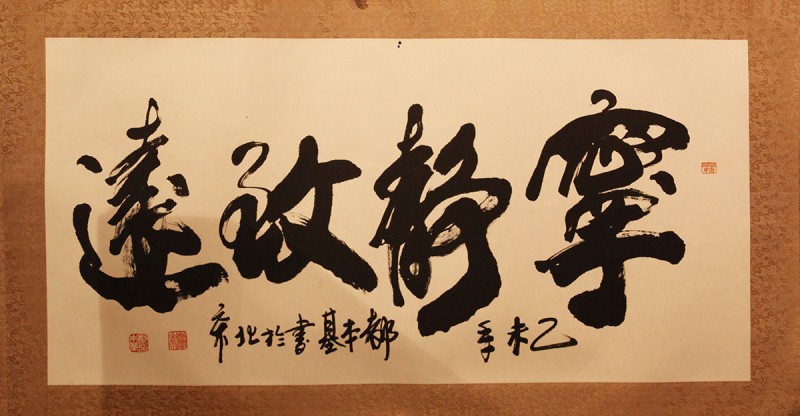 寧靜致遠
乙未年 郝本基書於北京